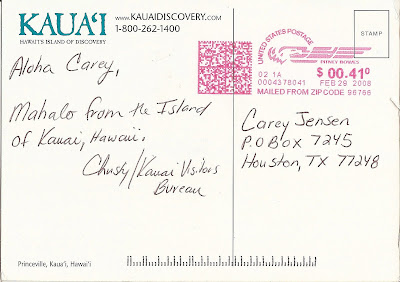 KAUA'I
HAWAI'I'S ISLAND OF DISCOVERY
www.KAUAIDISCOVERY.com
1-800-262-1400
UNITED STATES POSTAGE
PITNEY BOWES
02 1A
$ 00.41⁰
0004378041
FEB 29 2008
MAILED FROM ZIP CODE 96766
STAMP
Aloha Carey,
Mahalo from the Island
of Kauai, Hawaii.
Christy/Kauai Visitors
Bureau
Carey Jensen
P.O Box 7245
Houston, TX 77248
Princeville, Kaua'i, Hawai'i